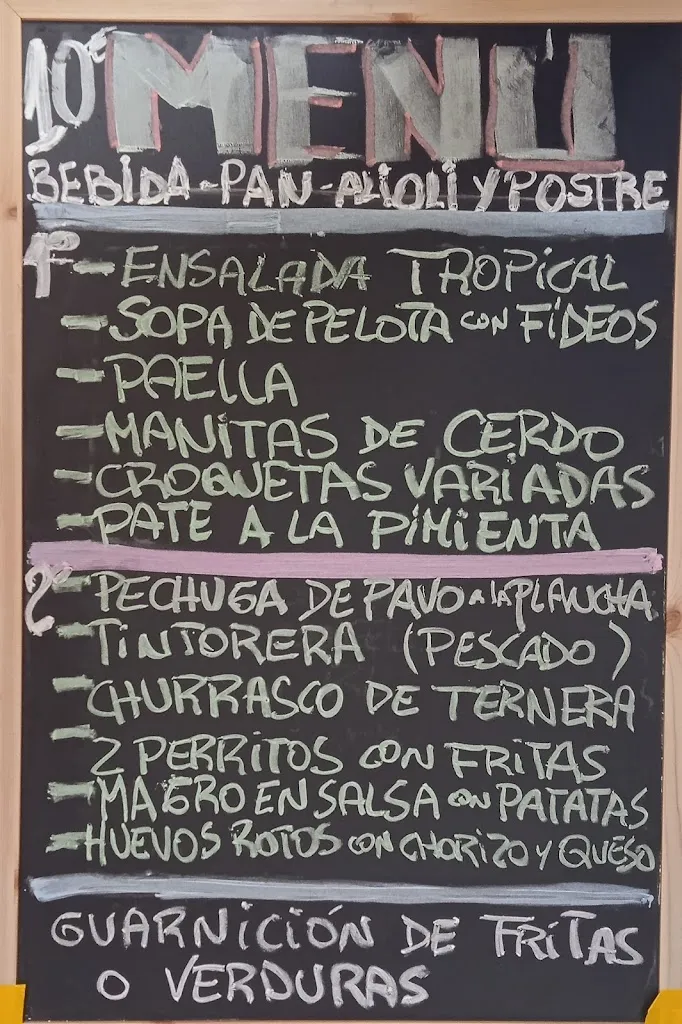 10€ MENÚ
BEBIDA - PAN - ALIOLI Y POSTRE
1º - ENSALADA TROPICAL
- SOPA DE PELOTA CON FIDEOS
- PAELLA
- MANITAS DE CERDO
- CROQUETAS VARIADAS
- PATE A LA PIMIENTA
2º - PECHUGA DE PAVO A LA PLANCHA
- TINTORERA (PESCADO)
- CHURRASCO DE TERNERA
- 2 PERRITOS CON FRITAS
- MAGRO EN SALSA CON PATATAS
- HUEVOS ROTOS CON CHORIZO Y QUESO
GUARNICIÓN DE FRITAS
O VERDURAS